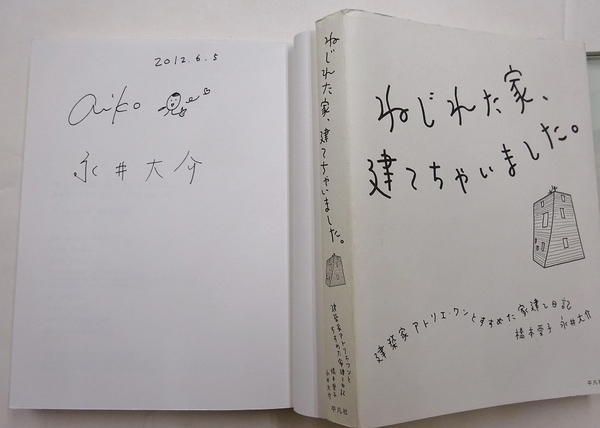 2012.6.5
aiko
永井大介
ねじれた家、建てちゃいました。
建築家アトリエ・ワンとすすめた家建て日記
橋本愛子
永井大介
平凡社
ねじれた家、
建てちゃいました。
建築家アトリエ・ワンとすすめた家建て日記
橋本愛子 永井大介
平凡社